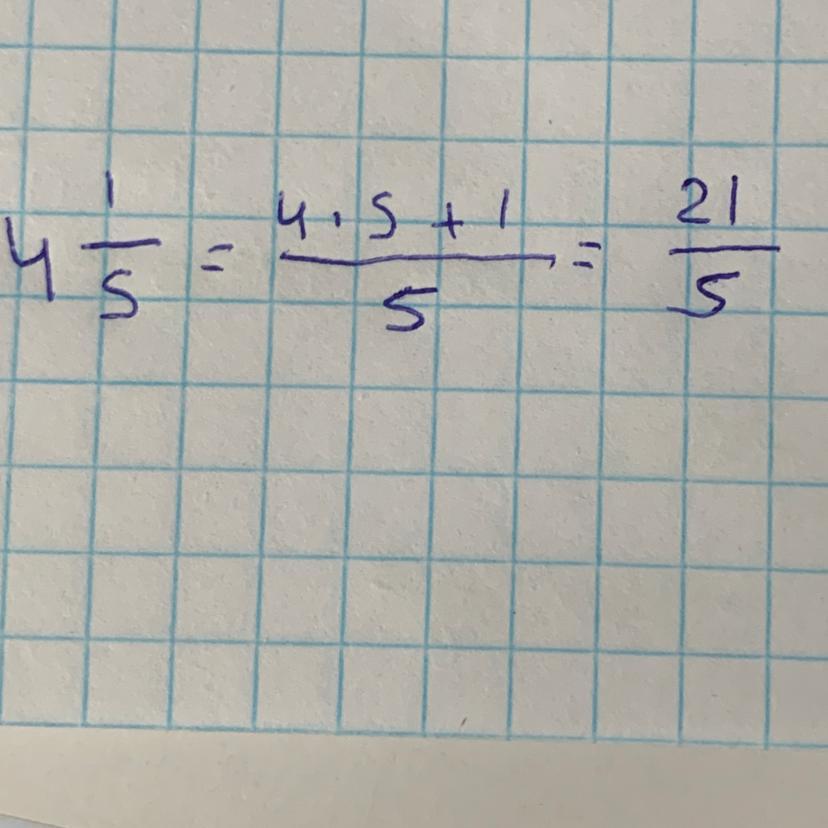 4 1/5 = (4 · 5 + 1)/5 = 21/5